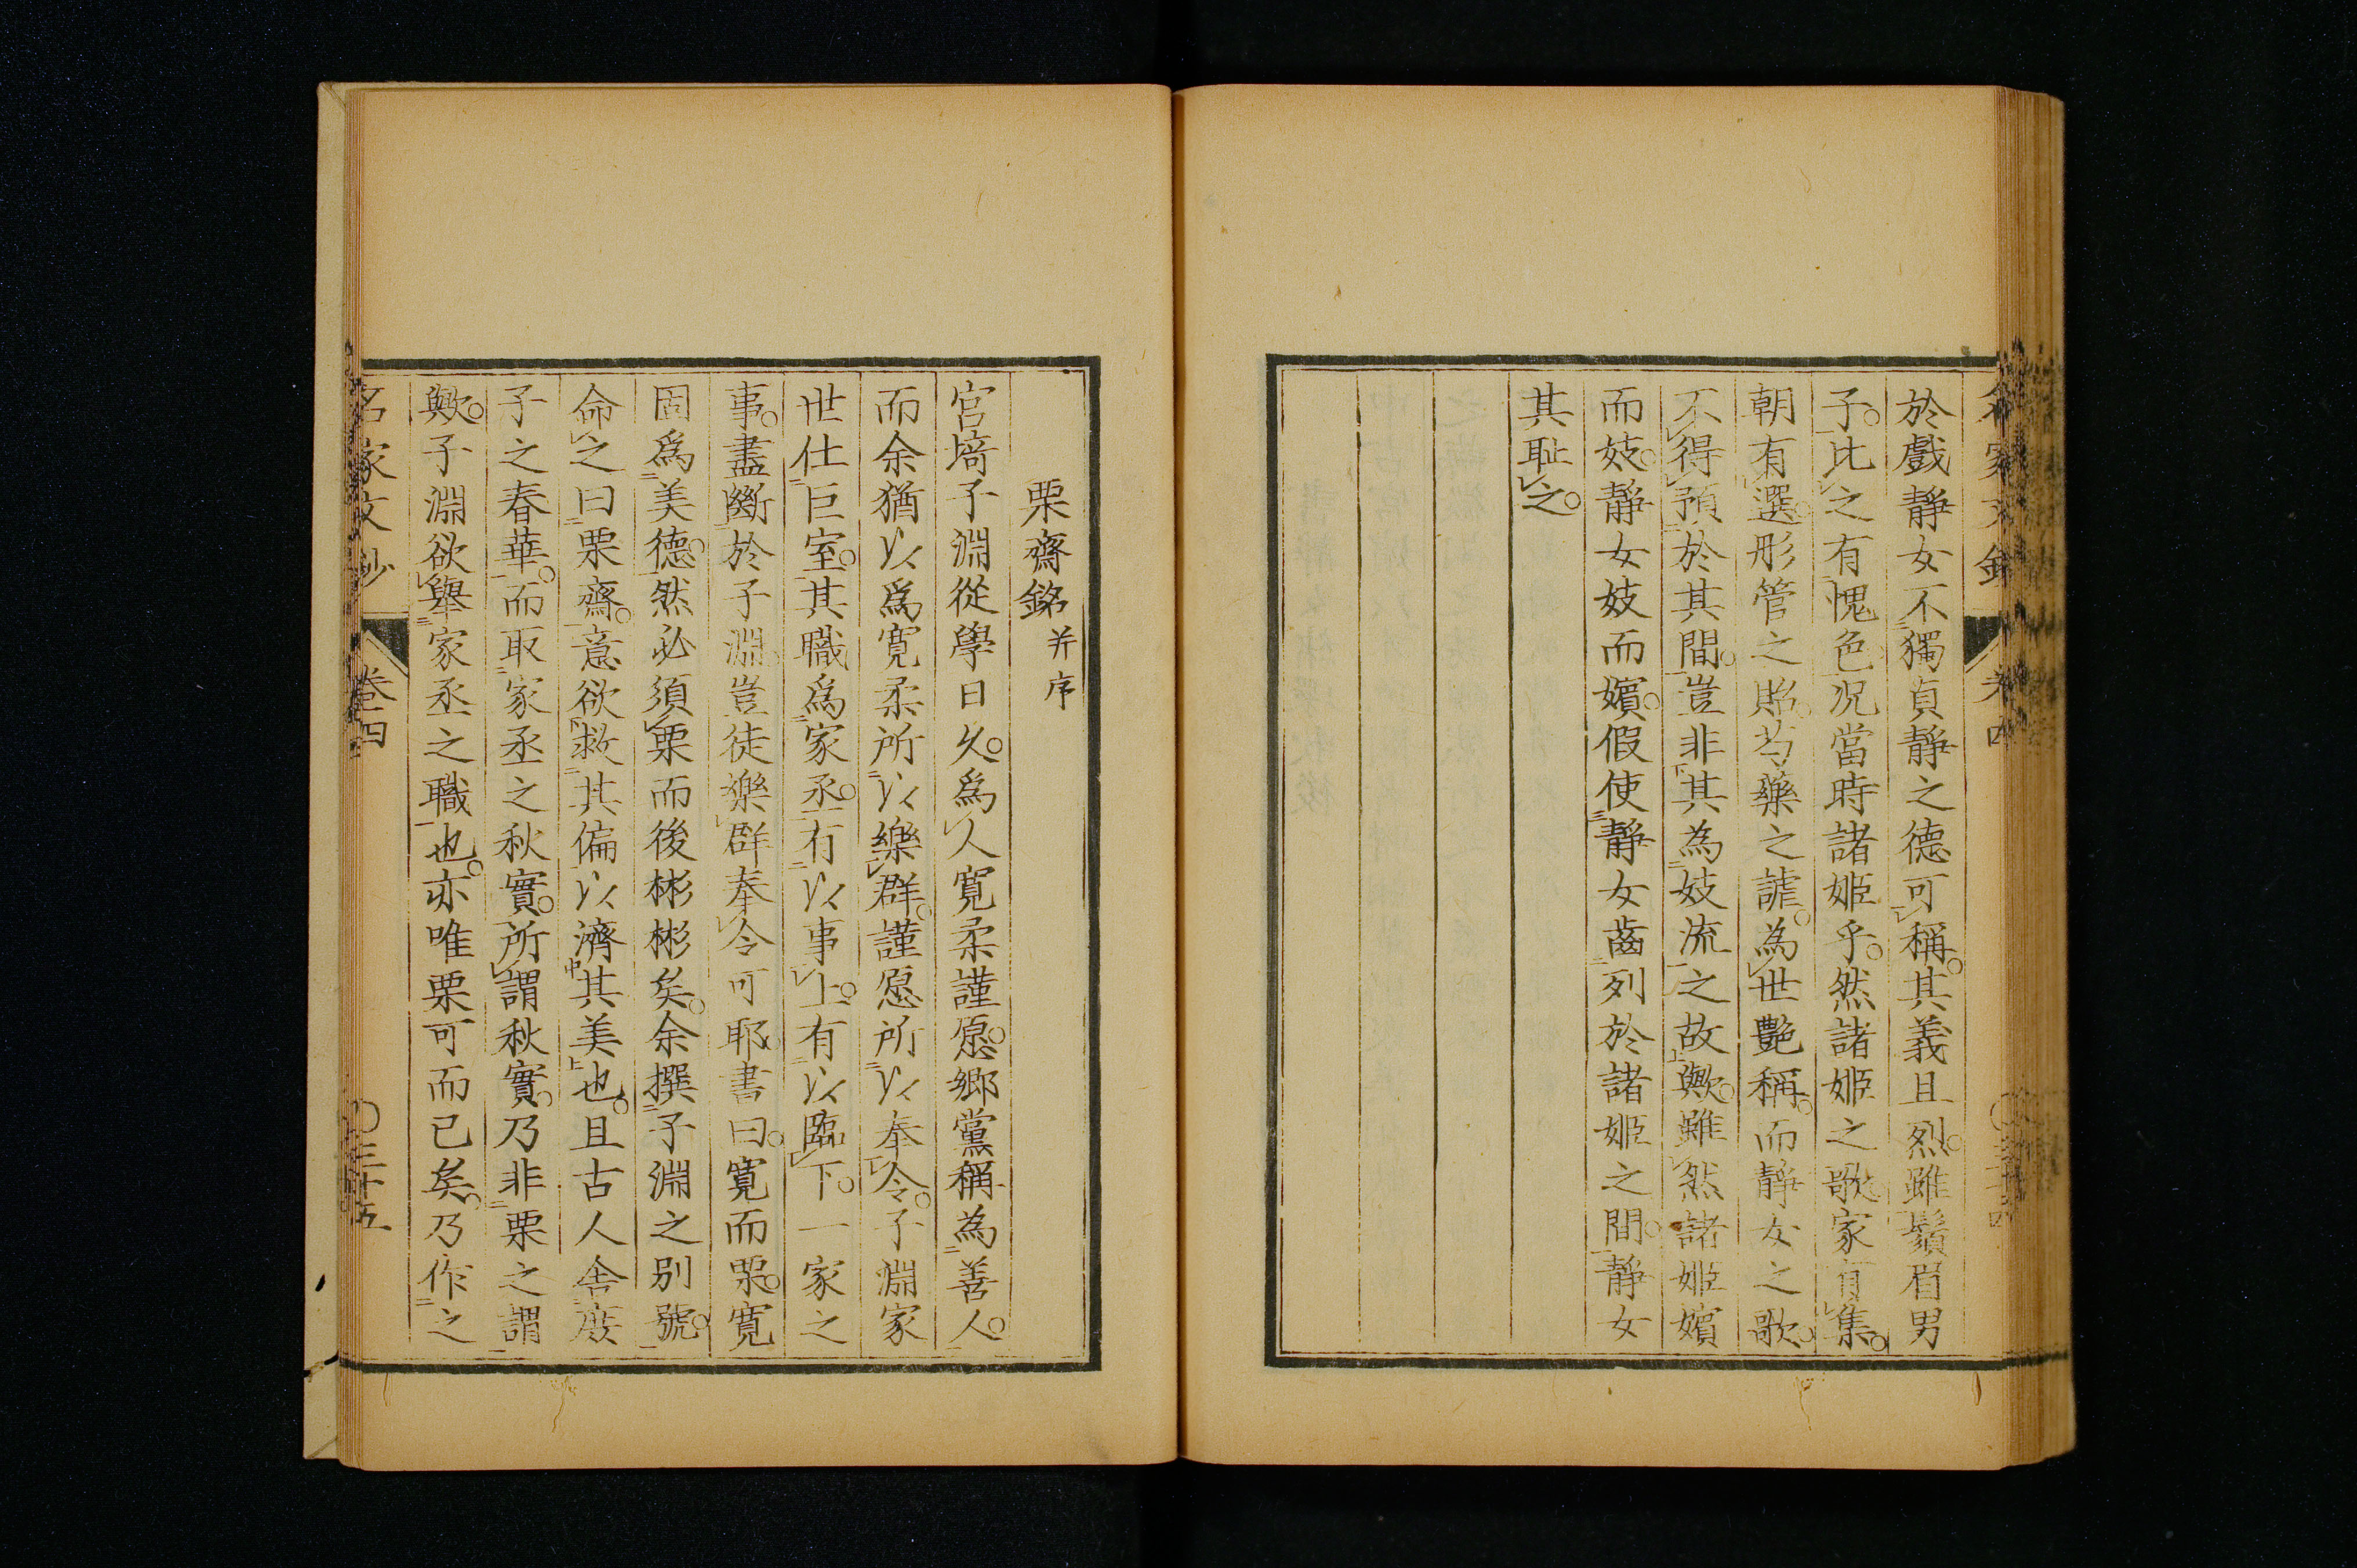 於戲靜女不獨貞靜之德可稱。其義且烈。雖鬚眉男
子。比之有愧色。况當時諸姬乎。然諸姬之歌。家有集。
朝有選。彤管之貽。芍藥之謔。為世艷稱。而靜女之歌。
不得預於其間。豈非其為妓流之故歟。雖然諸姬嬪
而妓。靜女妓而嬪。假使靜女齒列於諸姬之間。靜女
其耻之。
栗齋銘并序
宮埼子淵從學日久。爲人寬柔謹愿。鄉黨稱為善人。
而余猶以爲寬柔所以樂群。謹愿所以奉令。子淵家
世仕巨室。其職爲家丞。有以事上。有以臨下。一家之
事。盡斷於子淵。豈徒樂群奉令可耶。書曰。寬而栗。寬
固爲美德。然必須栗而後彬彬矣。余撰子淵之别號。
命之曰栗齋。意欲救其偏以濟其美也。且古人舍庶
子之春華。而取家丞之秋實。所謂秋實。乃非栗之謂
歟。子淵欲舉家丞之職也。亦唯栗可而已矣。乃作之
名家文鈔 卷四 〇三十五